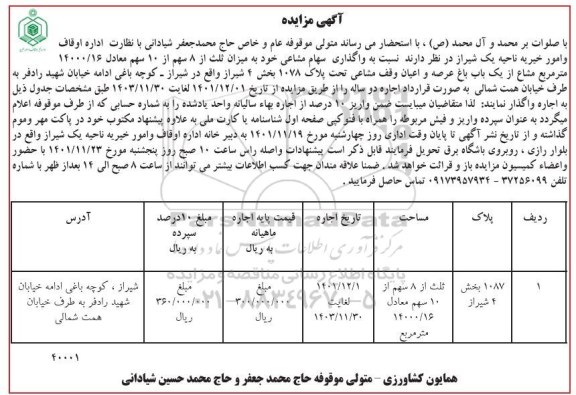 آگهی مزایده
با صلوات بر محمد و آل محمد (ص) ، با استحضار می رساند متولی موقوفه عام و خاص حاج محمدجعفر شیادانی با نظارت اداره اوقاف
وامور خیریه ناحیه یک شیراز در نظر دارند نسبت به واگذاری سهام مشاعی خود به میزان ثلث از ۸ سهم از ۱۰ سهم معادل ۱۴۰۰۰/۱۶
مترمربع مشاع از یک باب باغ عرصه و اعیان وقف مشاعی تحت پلاک ۱۰۷۸ بخش ۴ شیراز واقع در شیراز ـ کوچه باغی ادامه خیابان شهید رادفر به
طرف خیابان همت شمالی به صورت قرارداد اجاره دو ساله را از طریق مزایده از تاریخ ۱۴۰۱/۱۲/۰۱ لغایت ۱۴۰۳/۱۱/۳۰ طبق مشخصات جدول ذیل
به اجاره واگذار نمایند؛ لذا متقاضیان میبایست ضمن واریز ۱۰ درصد از اجاره بهاء سالیانه واحد یادشده را به شماره حسابی که از طرف موقوفه اعلام
میگردد به عنوان سپرده واریز و فیش مربوطه را همراه با فتوکپی صفحه اول شناسنامه یا کارت ملی به علاوه پیشنهاد مکتوب خود در پاکت مهر وموم
گذاشته و از تاریخ نشر آگهی تا پایان وقت اداری روز چهارشنبه مورخ ۱۴۰۱/۱۱/۱۹ به دبیر خانه اداره اوقاف وامور خیریه ناحیه یک شیراز واقع در
بلوار رازی ، روبروی باشگاه برق تحویل فرمایند قابل ذکر است پیشنهادات واصله راس ساعت ۱۰ صبح روز پنجشنبه مورخ ۱۴۰۱/۱۱/۲۳ با حضور
واعضاء کمیسیون مزایده باز و قرائت خواهد شد . ضمنا علاقه مندان جهت کسب اطلاعات بیشتر می توانند از ساعت ۸ صبح الی ۱۴ بعداز ظهر با شماره
تلفن ۳۷۲۵۶۰۹۹ - ۰۹۱۷۳۹۵۷۹۳۴ تماس حاصل فرمایید .
ردیف پلاک مساحت تاریخ اجاره قیمت پایه اجاره ماهیانه به ریال مبلغ ۱۰درصد سپرده به ریال آدرس
۱ ۱۰۸۷ بخش ۴ شیراز ثلث از ۸ سهم از ۱۰ سهم معادل ۱۴۰۰۰/۱۶ مترمربع ۱۴۰۱/۱۲/۱ لغایت ۱۴۰۳/۱۱/۳۰ مبلغ ۳۰۰/۰۰۰/۰۰۰ ریال مبلغ ۳۶۰/۰۰۰/۰۰۰ ریال شیراز ، کوچه باغی ادامه خیابان شهید رادفر به طرف خیابان همت شمالی
۴۰۰۰۱
همایون کشاورزی - متولی موقوفه حاج محمد جعفر و حاج محمد حسین شیادانی
ParsNamadData
پایگاه اطلاع رسانی مناقصه و مزایده
۰۲۱-۸۸۳۴۹۶۷۰-۵